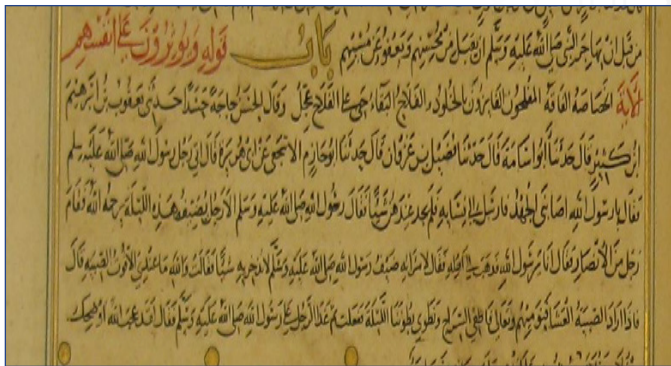 من قبل ان يهاجر النبي صلى الله عليه وسلم ان يقبل من محسنهم ويعفو عن مسيئهم باب قوله ويؤثرون على انفسهم
الاية الخصاصة الفاقة المفلحون الفائزون بالخلود والفلاح البقاء حي على الفلاح عجل وقال الحسن حاجة حسدا حدثني يعقوب بن ابرهيم
ابن كثير قال حدثنا ابو اسامة قال حدثنا فضيل بن غزوان قال حدثنا ابو حازم الاشجعي عن ابي هريرة قال اتى رجل رسول الله صلى الله عليه وسلم
فقال يا رسول الله اصابني الجهد فارسل الى نسايه فلم يجد عندهن شيئا فقال رسول الله صلى الله عليه وسلم الا رجل يضيف هذه الليلة يرحمه الله فقام
رجل من الانصار فقال انا يا رسول الله فذهب الى اهله فقال لامراته ضيف رسول الله صلى الله عليه وسلم لا تدخريه شيئا فقالت والله ما عندي الا قوت الصبية قال
فاذا اراد الصبية العشا فنوميهم وتعالي فاطفئ السراج ونطوي بطوننا الليلة ففعلت ثم غدا الرجل على رسول الله صلى الله عليه وسلم فقال لقد عجب الله او ضحك